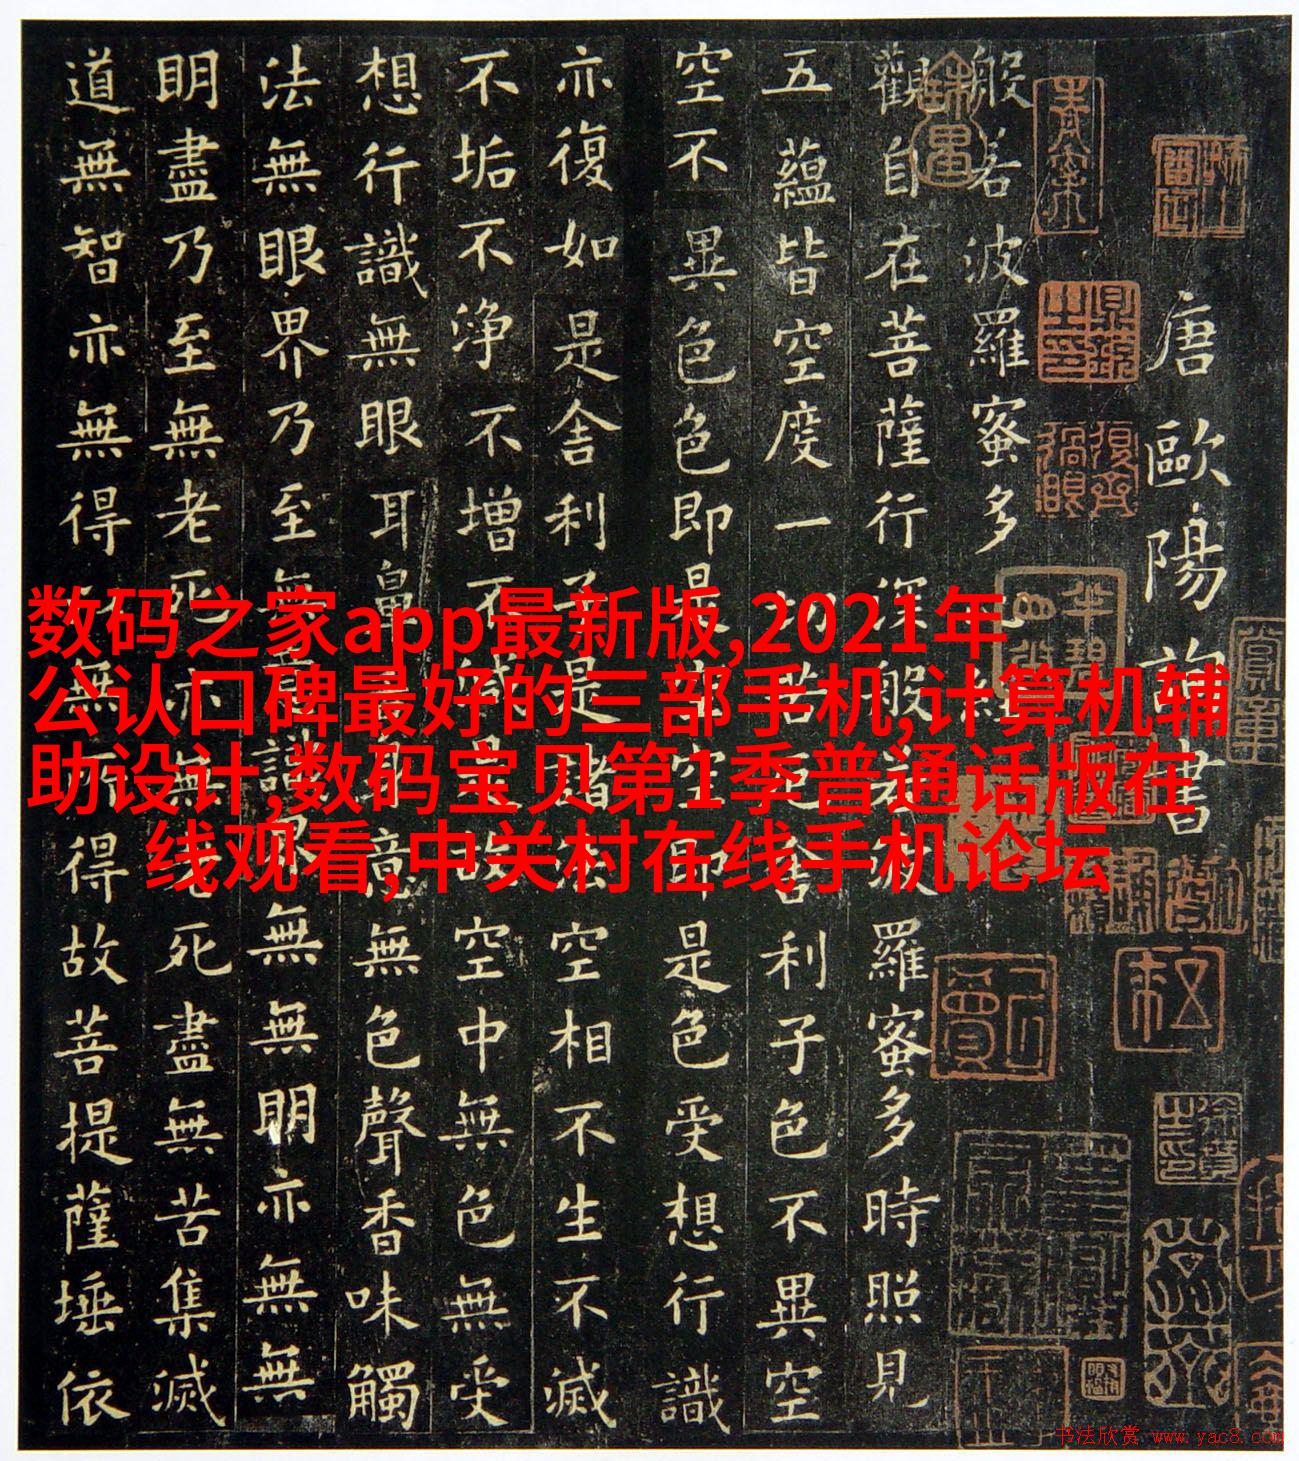 唐歐陽詢書
般若波羅蜜多經
觀自在菩薩行深般若波羅蜜多時照見
五蘊皆空度一切苦厄舍利子色不異空
空不異色色即是空空即是色受想行識
亦復如是舍利子是諸法空相不生不滅
不垢不淨不增不減是故空中無色無受
想行識無眼耳鼻舌身意無色聲香味觸
法無眼界乃至無意識界無無明亦無無
明盡乃至無老死亦無老死盡無苦集滅
道無智亦無得以無所得故菩提薩埵依
数码之家app最新版,2021年
公认口碑最好的三部手机,计算机辅
助设计,数码宝贝第1季普通话版在
线观看,中关村在线手机论坛
书法欣赏 www.yac8.com